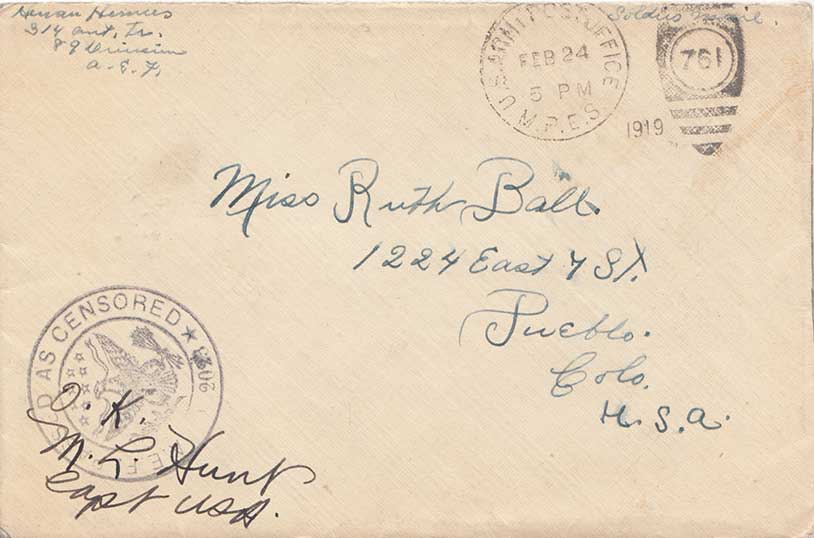 314 Amt. Tr.
89 Division
A. E. F.
Soldiers Mail.
U.S. ARMY POST OFFICE
FEB 24
5 PM
M.P.E.S.
1919
761
Miss Ruth Ball.
1224 East 7 St.
Pueblo.
Colo.
U. S. A.
AS CENSORED
O. K.
M. L. Hunt
Capt USA.